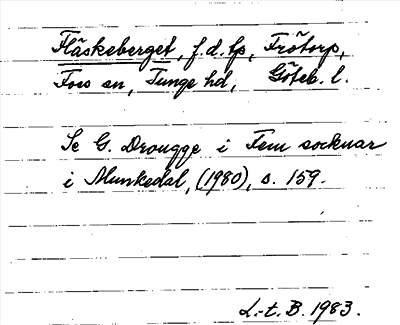 Fläskeberget, f.d. lp, Trötorp,
Foss sn, Tunge hd, Göteb. l.
Se G. Drougge i Fem socknar
i Munkedal, (1980), s. 159.
L.-t. B. 1983.